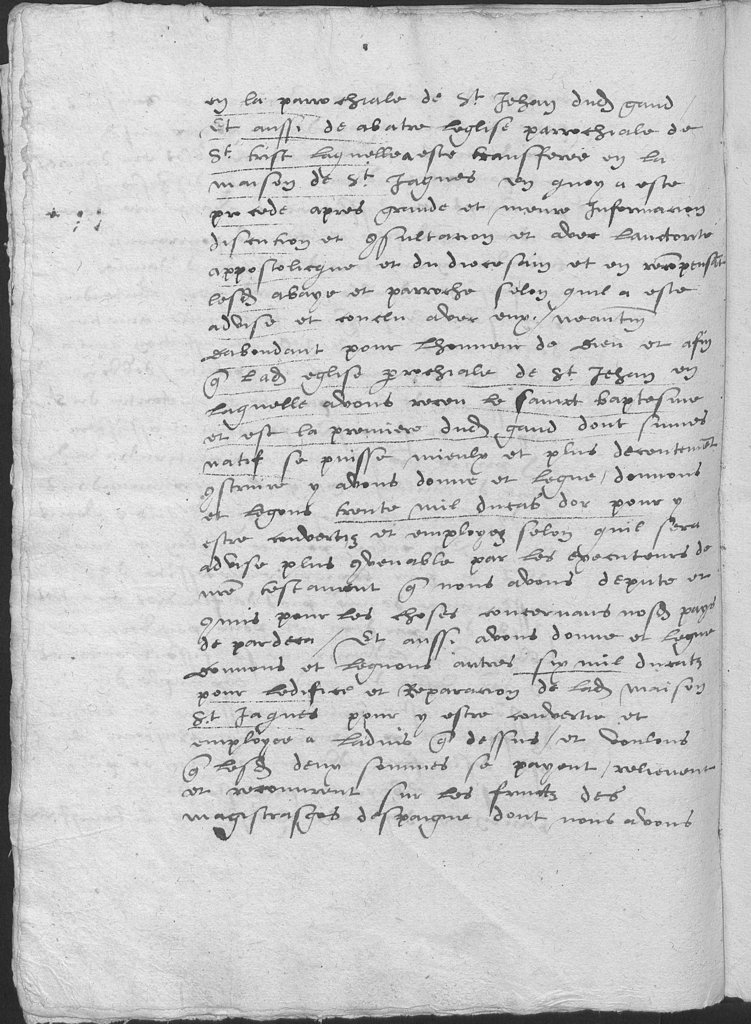 en la parrochiale de St Jehan dudt gand /
Et aussi de abatre leglise parrochiale de
St crist laquelle a este transferee en la
maison de St Jaques en quoy a este
procede apres grande et meure Informacion
discution et gsultacion et avec lauctorite
appostolicque et du diocesain et en recompensant
lesd abaye et parroche selon quil a este
advise et conclu avec eux / neantm
dabondant pour lhonneur de dieu et afin
q ladt eglise prochiale de St Jehan en
laquelle avons receu le sainct baptesme
et est la premiere dudt gand dont sumes
natif se puisse mieulx et plus decentement
gstruire y avons donne et legue / donnons
et legons trente mil ducas dor pour y
estre convertiz et employez selon quil sera
advise plus gvenable par les executeurs de
nre testament q nous avons depute et
gmis pour les choses concernans nosd pays
de pardeca / Et aussi avons donne et legue
donnons et legnons aultres six mil ducatz
pour ledifice et Reparacion de ladt maison
St Jaques pour y estre convertie et
employee a ladvis q dessus / et voulons
q lesd deux sommes se payent / relievent
et recouvrent sur les fruictz des
magistrasgos despaigne dont nous avons